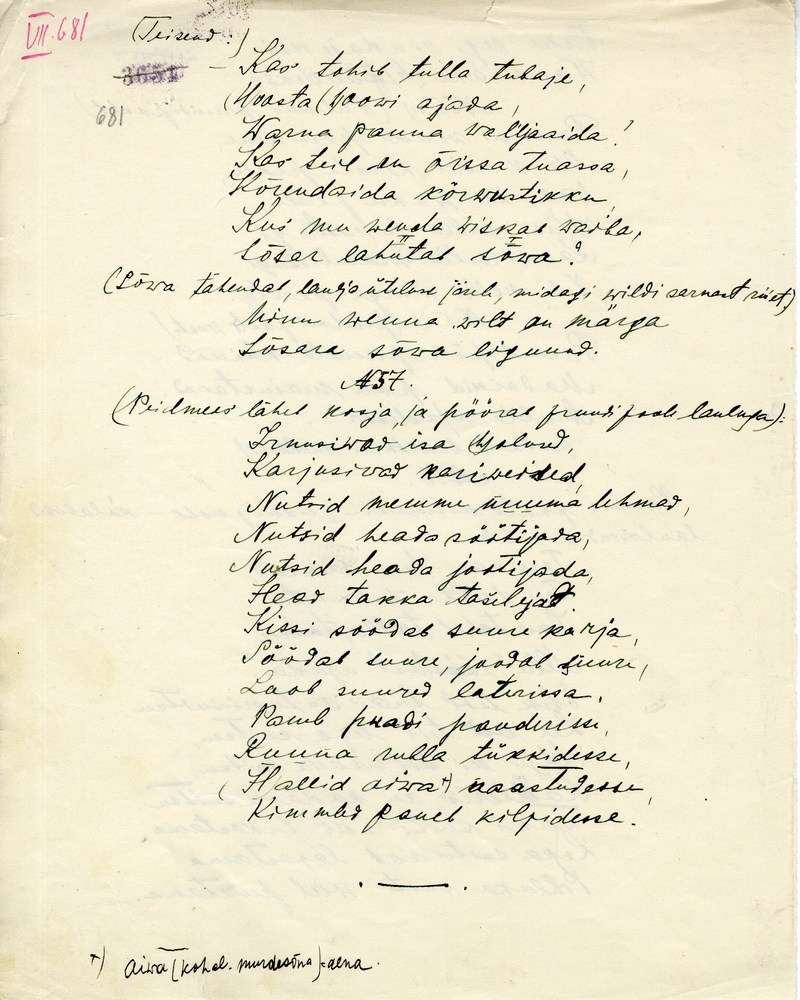 VII.681
(Teisend.)
3651
681
– Kas tohib tulla tubaje,
(H)oosta (h)oowi ajada,
Warna panna walljaaida!
Kas teil on õissa tuassa,
Kõrendaida kõrwustikku,
Kus mu wenda wiskab waiba,
Sõsar lahutab sõwa?
(Sõwa tähendab, laulja ütelusе järele, midagi wildi sarnast riiet)
Minu wenna wilt on märga
Sõsara sõwa ligunud.
№57.
(Peidmees läheb kosja ja pöörab pruudi poole lauluga):
Irnusiwad isa (h)obused,
Karjusivad kariweised,
Nutsid memme muuma lehmad,
Nutsid heada söötijada,
Nutsid heada jootijada,
Head takka talitejat.
Kissi söödab suure karja,
Söödab suure, joodab suure,
Loob suured laterissa.
Paneb puadi pouderisse,
Ruuna rubla tükkidesse,
(H)allid aiwa+) aastudesse,
Kimmbed paneb kilpidesse.
+) Aiwa (kohal. murdesõna) = aena.